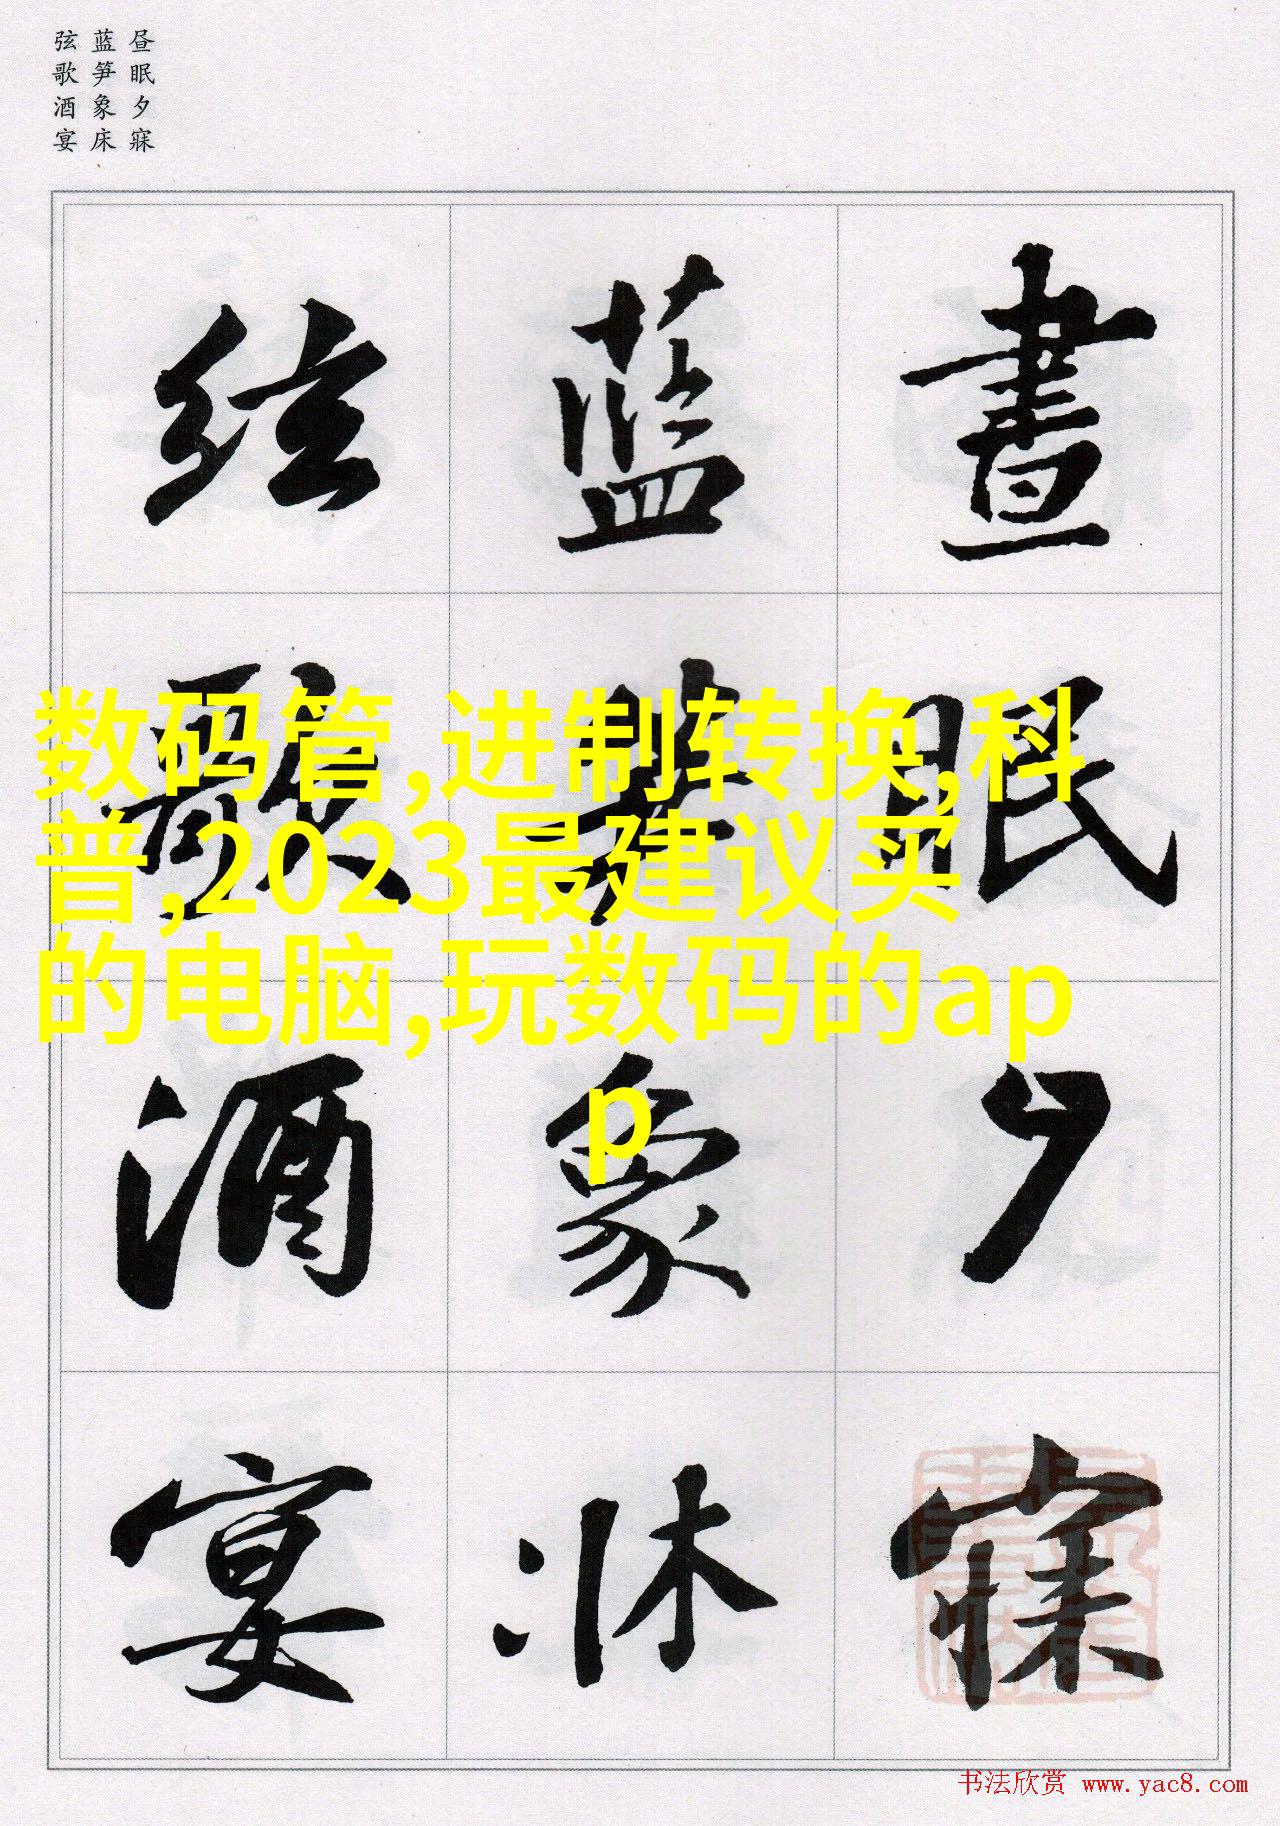 昼眠夕寐
蓝笋象床
弦歌酒宴
晝眠夕寐
藍笋象床
弦歌酒宴
数码管,进制转换,科
普,2023最建议买
的电脑,玩数码的ap
p
书法欣赏 www.yac8.com